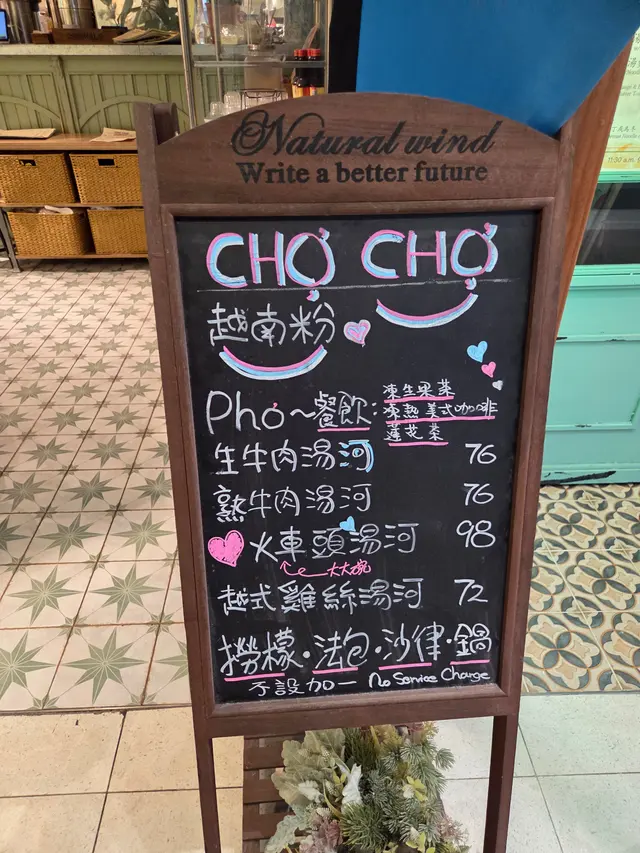 Natural wind
Write a better future
CHỢ CHỢ
越南粉
Phở～餐飲：凍生果茶
凍熱美式咖啡
蓮花茶
生牛肉湯河 76
熟牛肉湯河 76
火車頭湯河 98
大大碗
越式雞絲湯河 72
撈檬·法包·沙律·鍋
不設加一 No Service Charge
11:30 a.m.